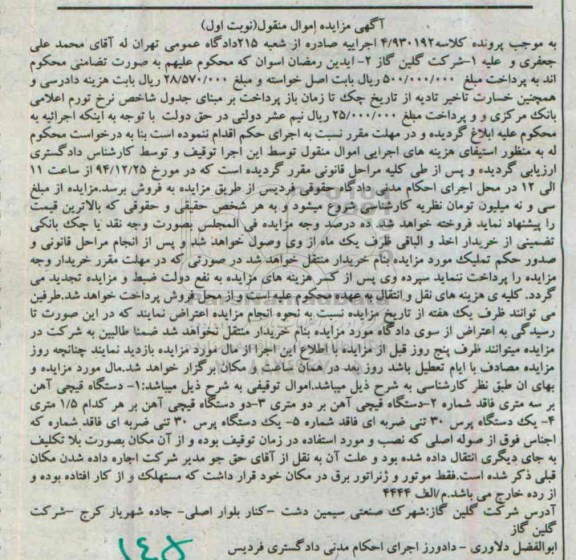 آگهی مزایده اموال منقول(نوبت اول)
به موجب پرونده کلاسه۴/۹۳۰۱۹۲ اجراییه صادره از شعبه ۲۱۵دادگاه عمومی تهران له آقای محمد علی
جعفری و علیه ۱-شرکت گلین گاز ۲- ایدین رمضان اسوان که محکوم علیهم به صورت تضامنی محکوم
اند به پرداخت مبلغ ۵۰۰/۰۰۰/۰۰۰ ریال بابت اصل خواسته و مبلغ ۲۸/۵۷۰/۰۰۰ ریال بابت هزینه دادرسی و
همچنین خسارت تاخیر تادیه از تاریخ چک تا زمان باز پرداخت بر مبنای جدول شاخص نرخ تورم اعلامی
بانک مرکزی و و پرداخت مبلغ ۲۵/۰۰۰/۰۰۰ ریال نیم عشر دولتی در حق دولت با توجه به اینکه اجرائیه به
محکوم علیه ابلاغ گردیده و در مهلت مقرر نسبت به اجرای حکم اقدام ننموده است بنا به درخواست محکوم
له به منظور استیفای هزینه های اجرایی اموال منقول توسط این اجرا توقیف و توسط کارشناس دادگستری
ارزیابی گردیده و پس از طی کلیه مراحل قانونی مقرر گردیده است که در مورخ ۹۴/۱۲/۲۵ از ساعت ۱۱
الی ۱۲ در محل اجرای احکام مدنی دادگاه حقوقی فردیس از طریق مزایده به فروش برسد.مزایده از مبلغ
سی و نه میلیون تومان نظریه کارشناسی شروع میشود و به هر شخص حقیقی و حقوقی که بالاترین قیمت
را پیشنهاد نماید فروخته خواهد شد. ده درصد وجه مزایده فی المجلس بصورت وجه نقد یا چک بانکی
تضمینی از خریدار اخذ و الباقی ظرف یک ماه از وی وصول خواهد شد و پس از انجام مراحل قانونی و
صدور حکم تملیک مورد مزایده بنام خریدار منتقل خواهد شد در صورتی که در مهلت مقرر خریدار وجه
مزایده را پرداخت ننماید سپرده وی پس از کسر هزینه های مزایده به نفع دولت ضبط و مزایده تجدید می
گردد. کلیه ی هزینه های نقل و انتقال به عهده محکوم علیه است و از محل فروش پرداخت خواهد شد.طرفین
می توانند ظرف یک هفته از تاریخ مزایده نسبت به نحوه انجام مزایده اعتراض نمایند که در این صورت تا
رسیدگی به اعتراض از سوی دادگاه مورد مزایده بنام خریدار منتقل نخواهد شد ضمنا طالبین به شرکت در
مزایده میتوانند ظرف پنج روز قبل از مزایده با اطلاع این اجرا از مال مورد مزایده بازدید نمایند چنانچه روز
مزایده مصادف با ایام تعطیل باشد روز بعد در همان ساعت و مکان برگزار خواهد شد.مال مورد مزایده و
بهای ان طبق نظر کارشناسی به شرح ذیل میباشد.اموال توقیفی به شرح ذیل میباشد:۱- دستگاه قیچی آهن
بر سه متری فاقد شماره ۲-دستگاه قیچی آهن بر دو متری ۳-دو دستگاه قیچی آهن بر هر کدام ۱/۵ متری
۴- یک دستگاه پرس ۳۰ تنی ضربه ای فاقد شماره ۵- یک دستگاه پرس ۳۰ تنی ضربه ای فاقد شماره که
اجناس فوق از صوله اصلی که نصب و مورد استفاده در زمان توقیف بوده و از آن مکان بصورت بلا تکلیف
به جای دیگری انتقال داده شده بود و علت آن به نقل از آقای حق جو مدیر شرکت اجاره داده شدن مکان
قبلی ذکر شده است.فقط موتور و ژنراتور برق در مکان خود قرار داشت که مستهلک و از کار افتاده بوده و
از رده خارج می باشد.م/الف ۴۴۴۴
آدرس شرکت گلین گاز:شهرک صنعتی سیمین دشت -کنار بلوار اصلی- جاده شهریاز کرج -شرکت
گلین گاز
ابوالفضل دلاوری - دادورز اجرای احکام مدنی دادگستری فردیس